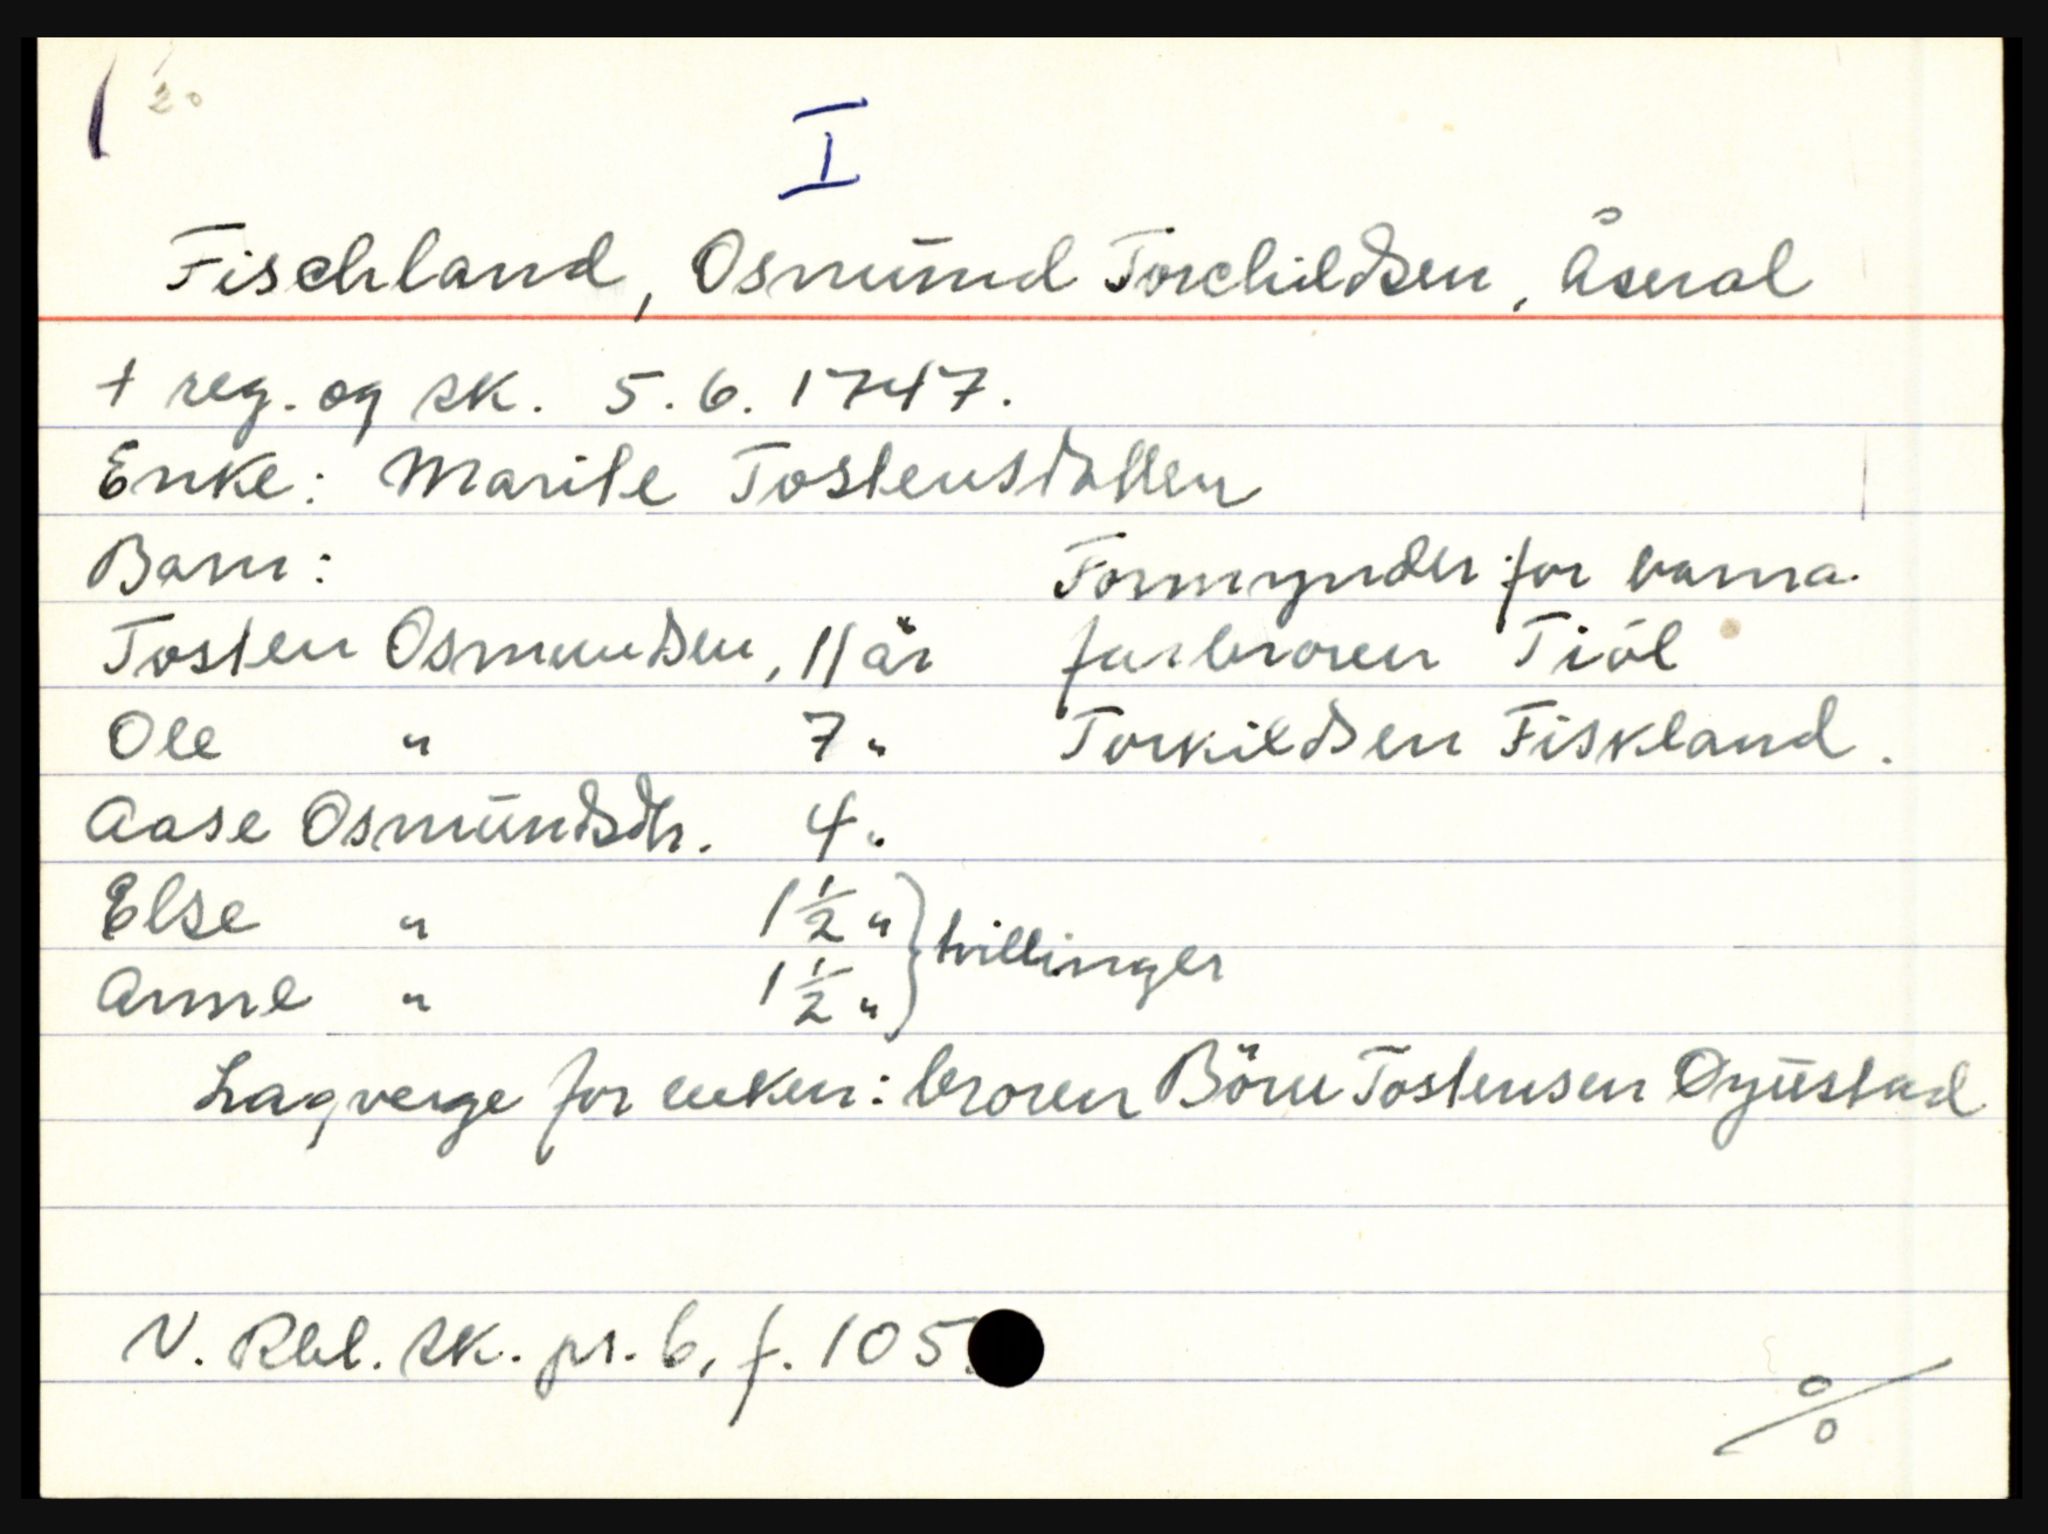 20
I
Fischland, Osmund Torchildsen, Åseral
† reg. og sk. 5.6. 1747.
Enke: Marite Tostensdatter
Barn: Formynder for barna
Tosten Osmundsen, 11 år farbroren Tiöl
Ole " 7 " Torkildsen Fiskland.
Aase Osmundsdtr. 4 "
Else " 1 1/2 "
} tvillinger
Anne " 1 1/2 "
Lagverge for enken: broren Böru Tostensen Øyustad
N. Rbl. sk. pr. 6, f. 105.
%